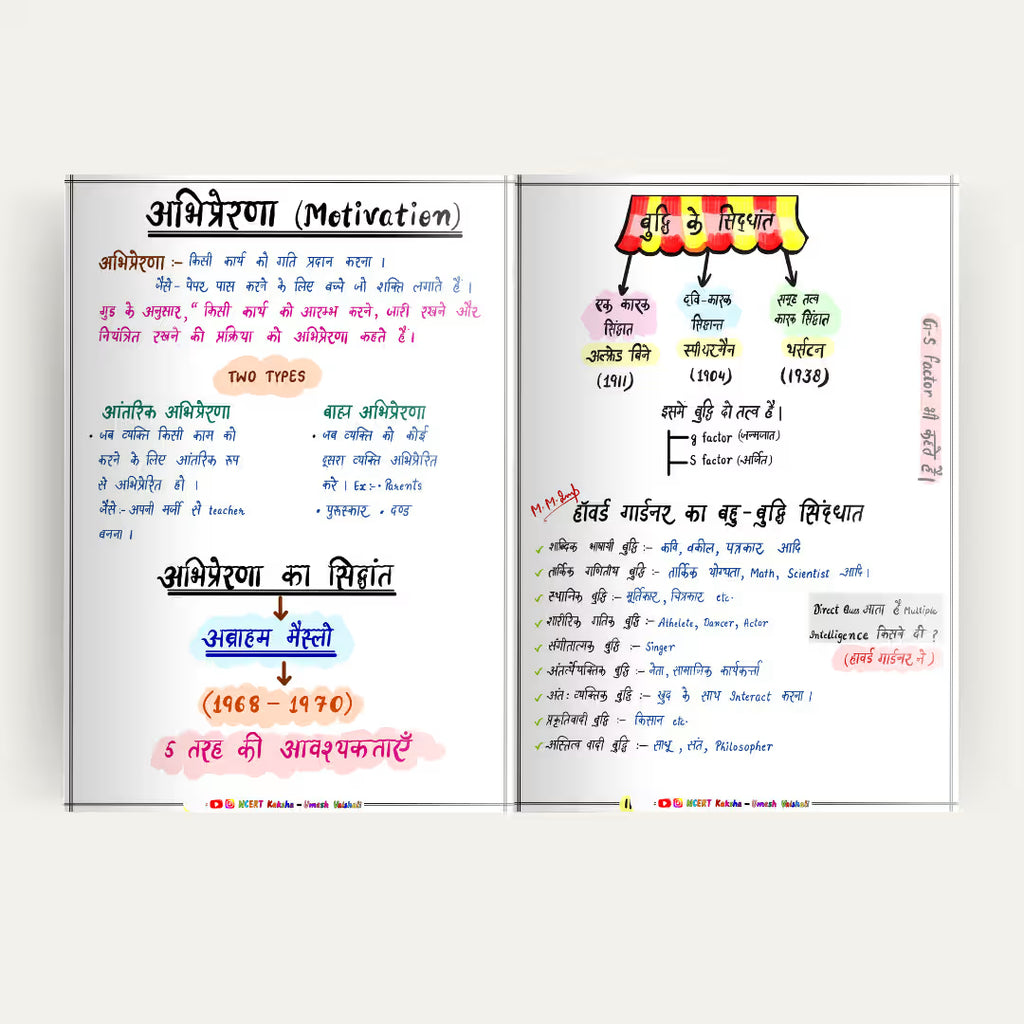 अभिप्रेरणा (Motivation)
अभिप्रेरणा :- किसी कार्य को गति प्रदान करना ।
जैसे- पेपर पास करने के लिए बच्चे जो शक्ति लगाते हैं ।
गुड के अनुसार, “ किसी कार्य को आरम्भ करने, जारी रखने और
नियंत्रित रखने की प्रक्रिया को अभिप्रेरणा कहते हैं।
TWO TYPES
आंतरिक अभिप्रेरणा
• जब व्यक्ति किसी काम को
करने के लिए आंतरिक रूप
से अभिप्रेरित हो ।
जैसे:- अपनी मर्जी से teacher
बनना ।
बाह्म अभिप्रेरणा
• जब व्यक्ति को कोई
दूसरा व्यक्ति अभिप्रेरित
करे । Ex:- • Parents
• पुरूस्कार • दण्ड
अभिप्रेरणा का सिद्वांत
अब्राहम मैस्लो
(1968 – 1970)
5 तरह की आवश्यकताएँ
NCERT Kaksha – Umesh Vaishali
बुद्वि के सिद्धांत
एक कारक
सिद्वांत
अल्फ्रेड बिने
(1911)
द्वि-कारक
सिद्वान्त
स्पीयरमैन
(1904)
समूह तत्व
कारक सिद्वांत
थर्सटन
(1938)
इसमें बुद्वि दो तत्व है |
g factor (जन्मजात)
S factor (अर्जित)
G-S factor भी कहते है |
M.M.Imp
हॉवर्ड गार्डनर का बहु-बुद्वि सिंद्धात
✓ शाब्दिक भाषायी बुद्वि :- कवि, वकील, पत्रकार आदि
✓ तार्किक गणितीय बुद्वि :- तार्किक योग्यता, Math, Scientist आदि ।
✓ स्थानिक बुद्वि :- मूर्तिकार, चित्रकार etc.
✓ शारीरिक गतिक बुद्वि :- Athelete, Dancer, Actor
✓ संगीतात्मक बुद्वि :- Singer
✓ अंतर्वैयक्तिक बुद्वि :- नेता, सामाजिक कार्यकर्त्ता
✓ अंत: व्यक्तिक बुद्वि :- खुद के साथ Interact करना ।
✓ प्रकृतिवादी बुद्वि :- किसान etc.
✓ अस्तित्व वादी बुद्वि :- साधू , संत, Philosopher
Direct Ques आता है Multiple
Intelligence किसने दी ?
(हावर्ड गार्डनर ने )
NCERT Kaksha – Umesh Vaishali